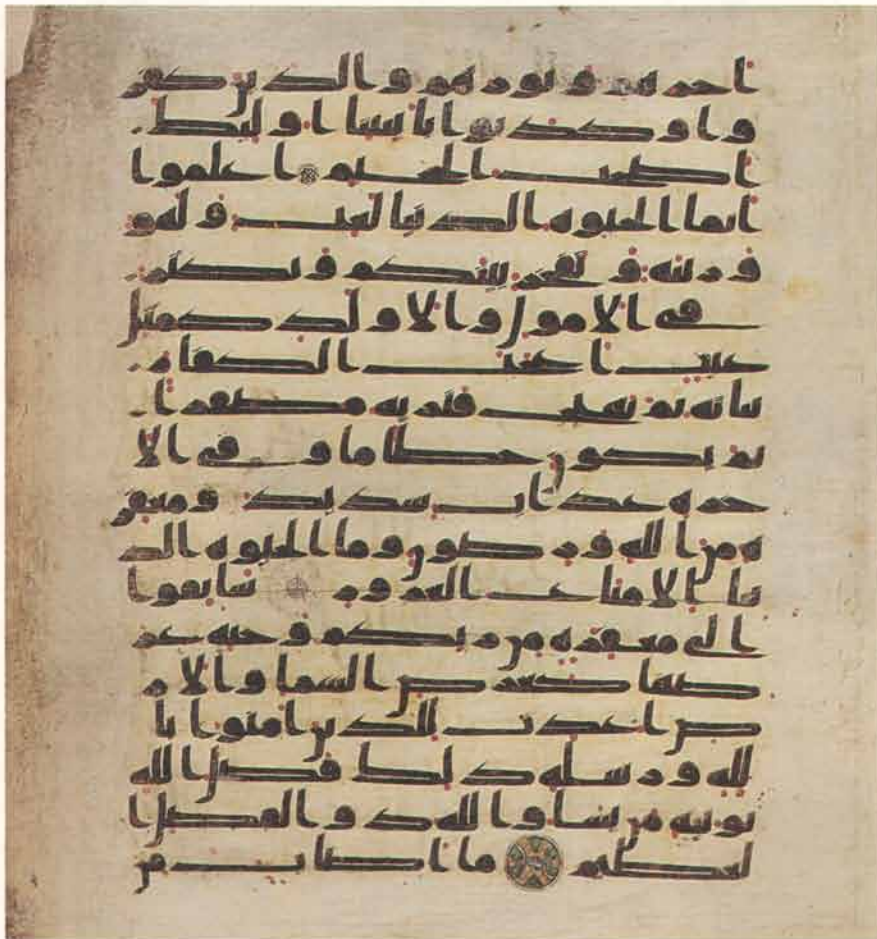 اجرهم ونورهم والذين كفر
وا وكذبوا بايتنا اوليك
اصحب الجحيم اعلموا
انما الحيوه الدنيا لعب ولهو
وزينه وتفخر بينكم وتكثر
في الامول والاولد كمثل
غيث اعجب الكفار
نباته ثم يهيج فتريه مصفرا
ثم يكون حطاما وفي الا
خره عذاب شديد ومغفر
ه من الله ورضون وما الحيوه الد
نيا الا متاع الغرور سابقوا
الى مغفره من ربكم وجنه عر
ضها كعرض السما والار
ض اعدت للذين امنوا با
لله ورسله ذلك فضل الله
يوتيه من يشا والله ذو الفضل ا
لعظيم ما اصاب من